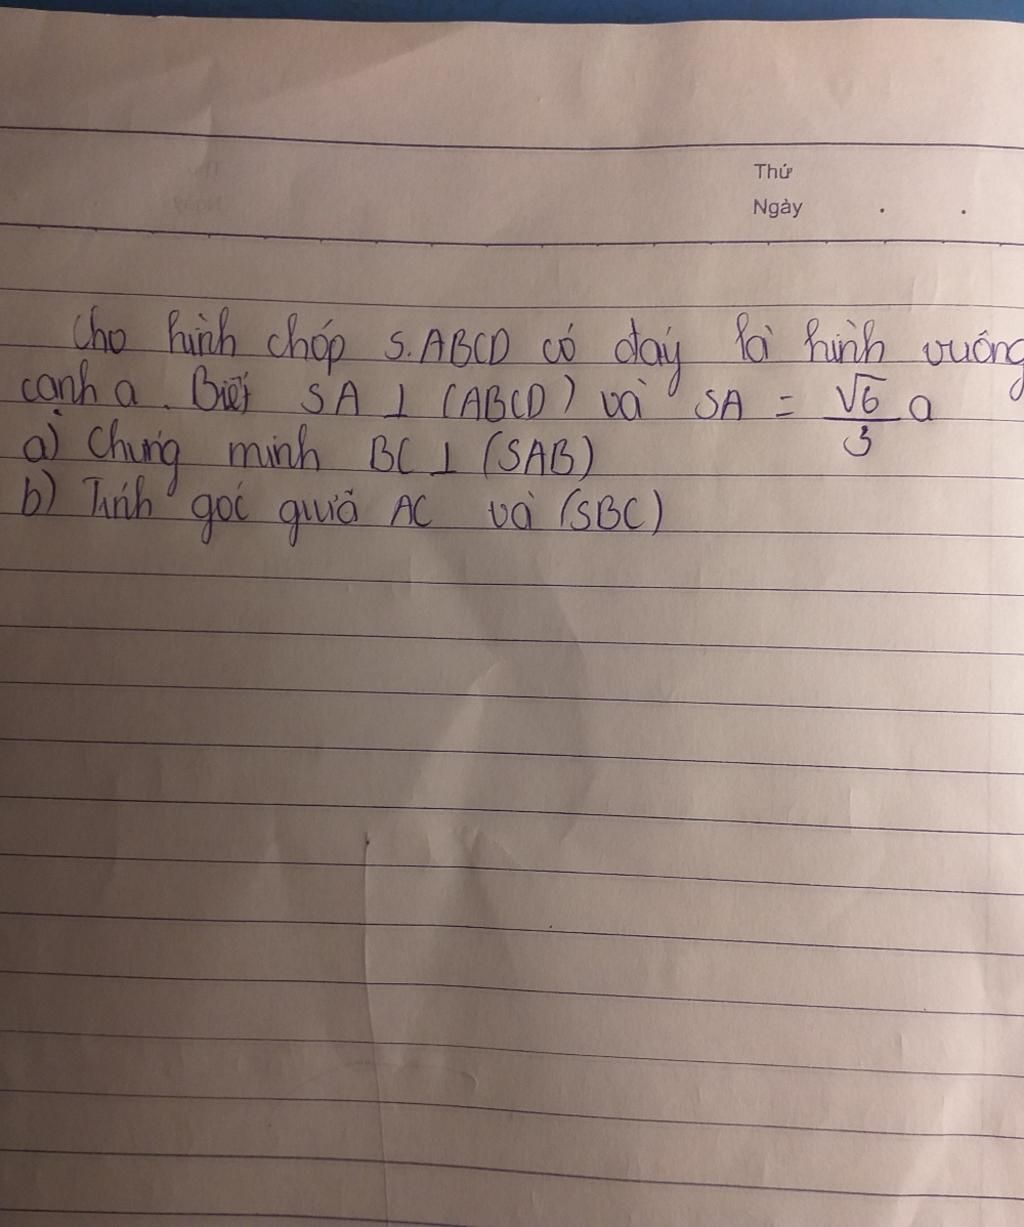 Thứ
Ngày . .
Cho hình chóp S.ABCD có đáy là hình vuông
cạnh a. Biết SA ⊥ (ABCD) và SA = √6/3 a
a) Chứng minh BC ⊥ (SAB)
b) Tính góc giữa AC và (SBC)